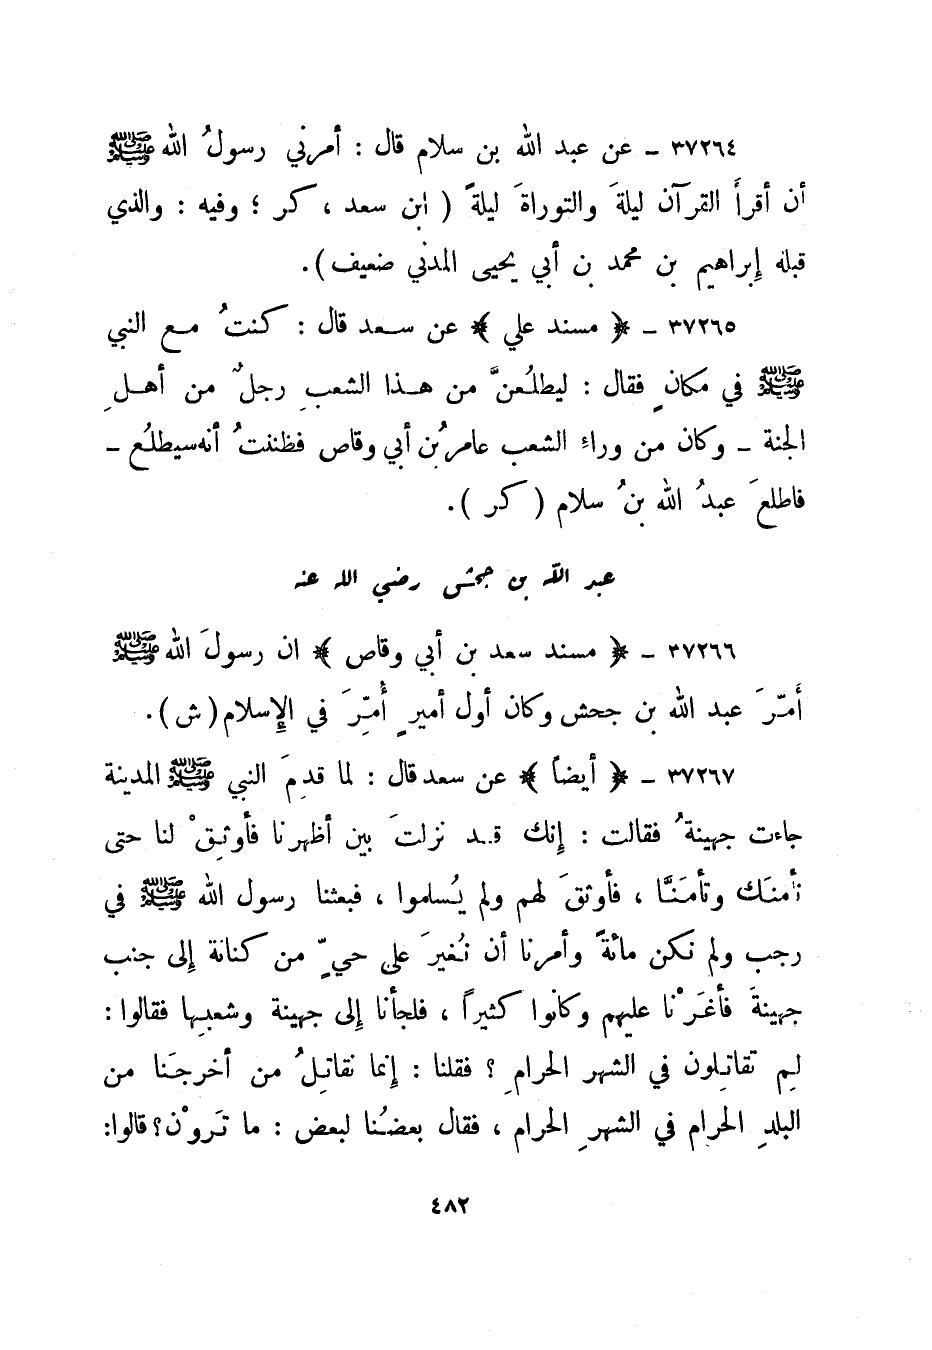 ٣٧٢٦٤ ـ عن عبد الله بن سلام قال : أمرني رسولُ الله ﷺ
أن أقرأَ القرآن ليلةَ والتوراةَ ليلةً ( ابن سعد ، كر ؛ وفيه : والذي
قبله إبراهيم بن محمد بن أبي يحيى المدني ضعيف ) .
٣٧٢٦٥ ـ ﴿ مسند علي ﴾ عن سعد قال : كنتُ مع النبي
ﷺ في مكانٍ فقال : ليطلُعنَّ من هذا الشعبِ رجلٌ من أهلِ
الجنة ـ وكان من وراءِ الشعب عامرُ بن أبي وقاص فظننتُ أنه سيطلُع ـ
فاطلعَ عبدُ الله بنُ سلام ( كر ) .
عبد الله بن جحش رضي الله عنه
٣٧٢٦٦ ـ ﴿ مسند سعد بن أبي وقاص ﴾ ان رسولَ الله ﷺ
أَمّرَ عبد الله بن جحش وكان أول أميرٍ أُمِّرَ في الإسلام ( ش ) .
٣٧٢٦٧ ـ ﴿ أيضاً ﴾ عن سعد قال : لما قدِمَ النبي ﷺ المدينة
جاءت جهينةُ فقالت : إنك قد نزلتَ بين أظهرنا فأوثِقْ لنا حتى
نأمنَك وتأمنَنَّا ، فأوثقَ لهم ولم يُسلموا ، فبعثنا رسول الله ﷺ في
رجب ولم نكن مائةً وأمرنا أن نُغيرَ على حيٍّ من كنانة إلى جنب
جهينةَ فأغَرْنا عليهم وكانوا كثيراً ، فلجأنا إلى جهينة وشعبِها فقالوا :
لِم تقاتِلون في الشهر الحرامِ ؟ فقلنا : إنما نقاتِلُ من أخرجَنا من
البلدِ الحرام في الشهرِ الحرامِ ، فقال بعضُنا لبعض : ما تَروْن؟ قالوا:
٤٨٢